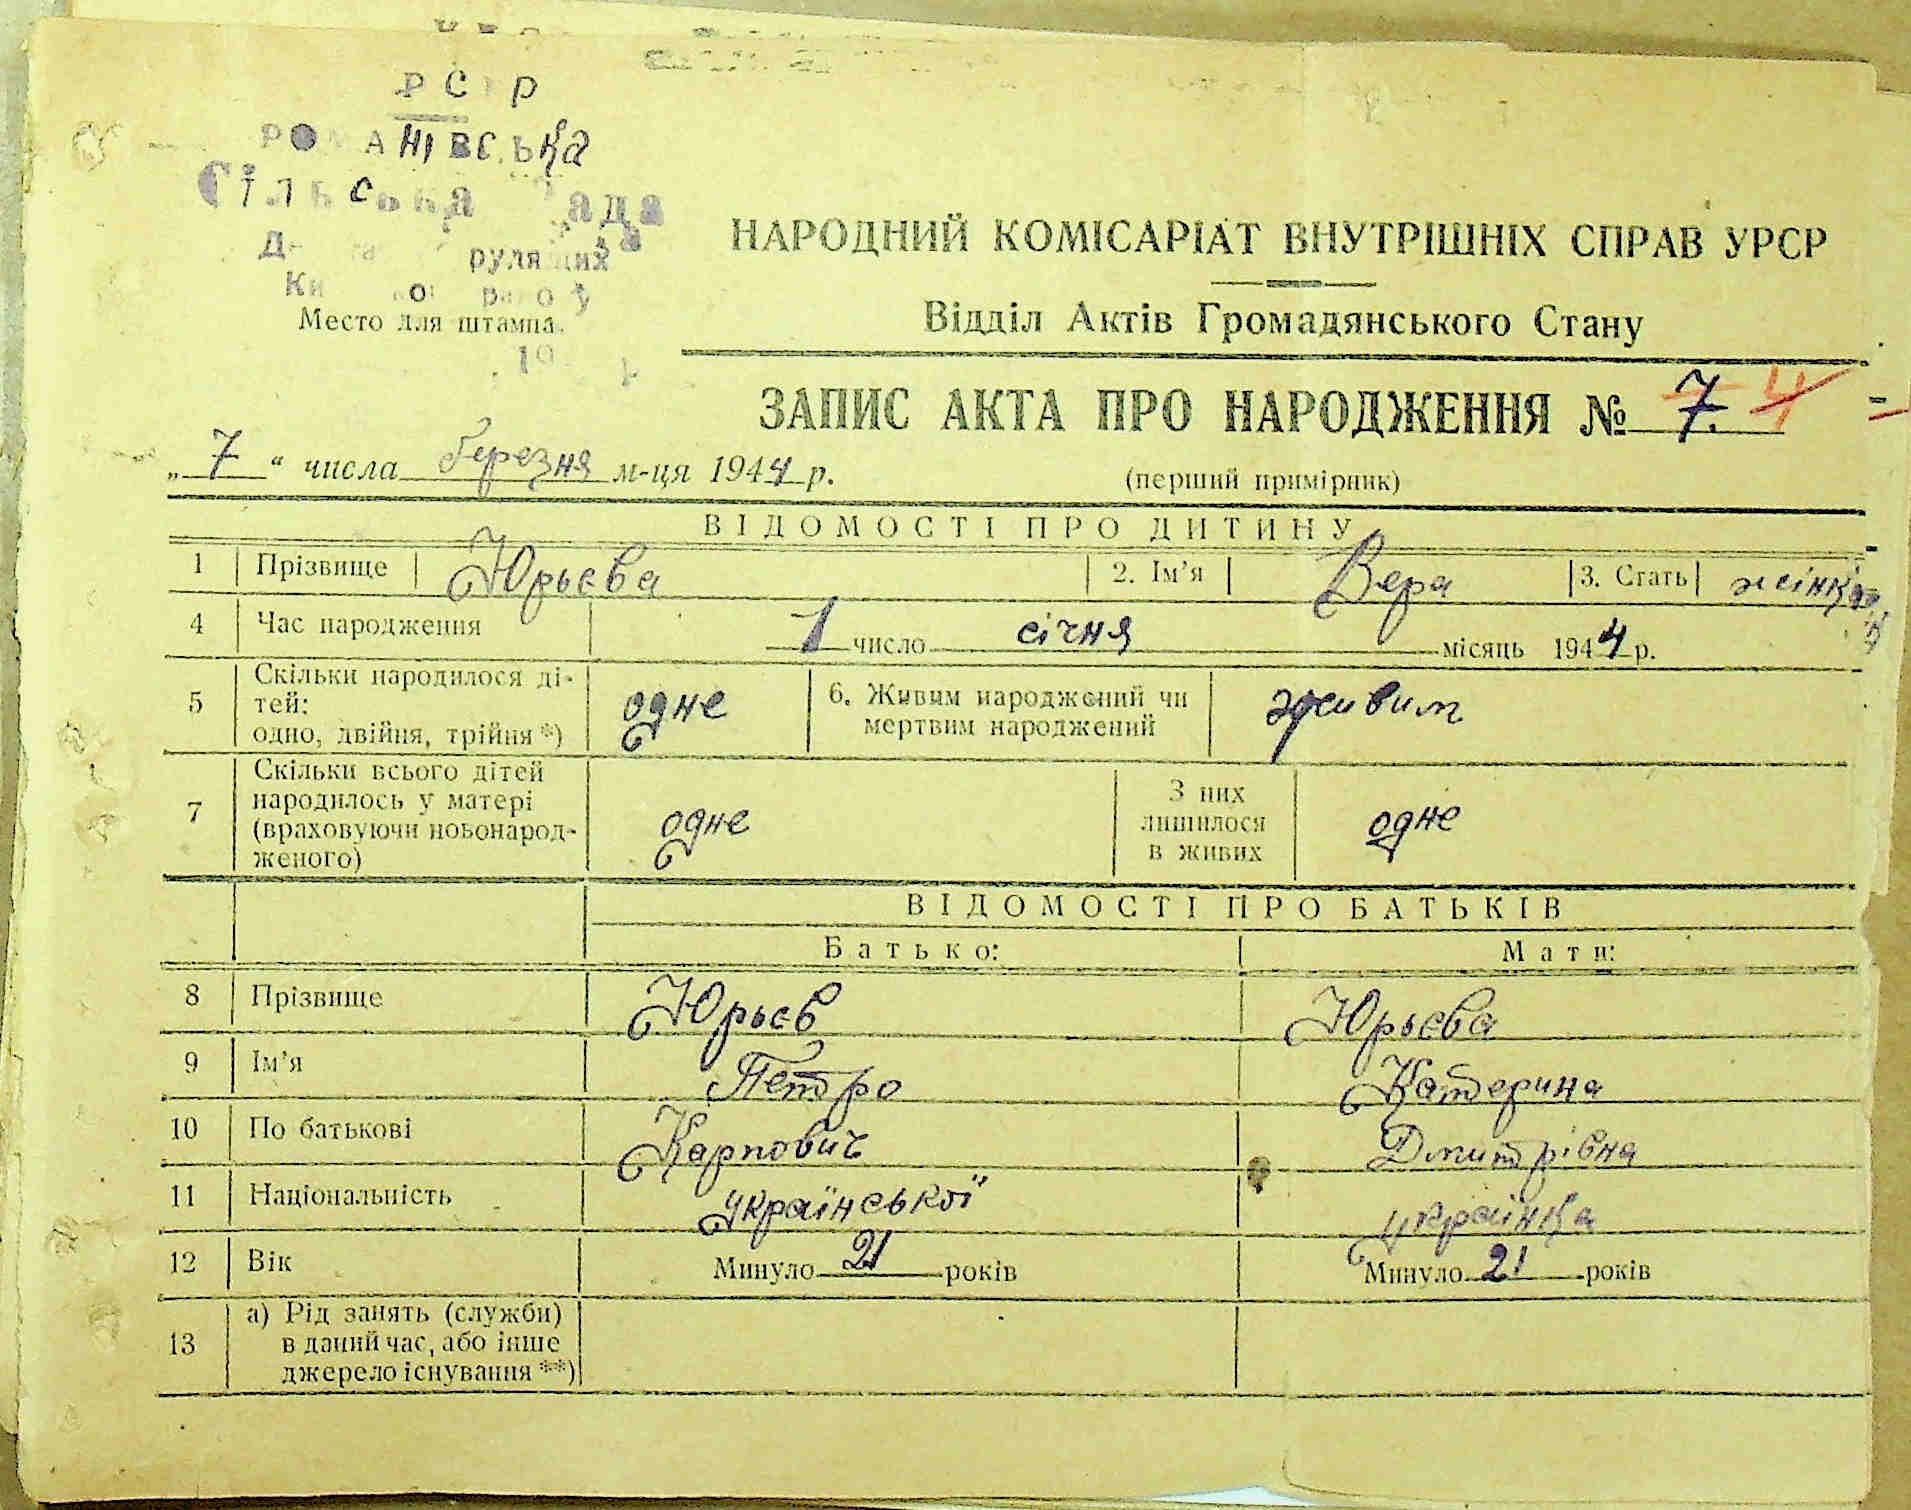 РОМАНІВСЬКА
Сільська Рада
Место для штампа.
НАРОДНИЙ КОМІСАРІАТ ВНУТРІШНІХ СПРАВ УРСР
Відділ Актів Громадянського Стану
ЗАПИС АКТА ПРО НАРОДЖЕННЯ № 7. 4
„ 7 “ числа березня м-ця 1944 р.
(перший примірник)
ВІДОМОСТІ ПРО ДИТИНУ
1 Прізвище Юрьєва 2. Ім'я Вера 3. Стать жінка
4 Час народження 1 число січня місяць 1944 р.
5 Скільки народилося ді-
тей:
одно, двійня, трійня *) одне 6. Живим народжений чи
мертвим народжений живим
7 Скільки всього дітей
народилось у матері
(враховуючи новонарод-
женого) одне З них
лишилося
в живих одне
ВІДОМОСТІ ПРО БАТЬКІВ
Батько: Мати:
8 Прізвище Юрьєв Юрьєва
9 Ім'я Петро Катерина
10 По батькові Карпович Дмитрівна
11 Національність української українка
12 Вік Минуло 21 років Минуло 21 років
13 а) Рід занять (служби)
в даний час, або інше
джерело існування **)